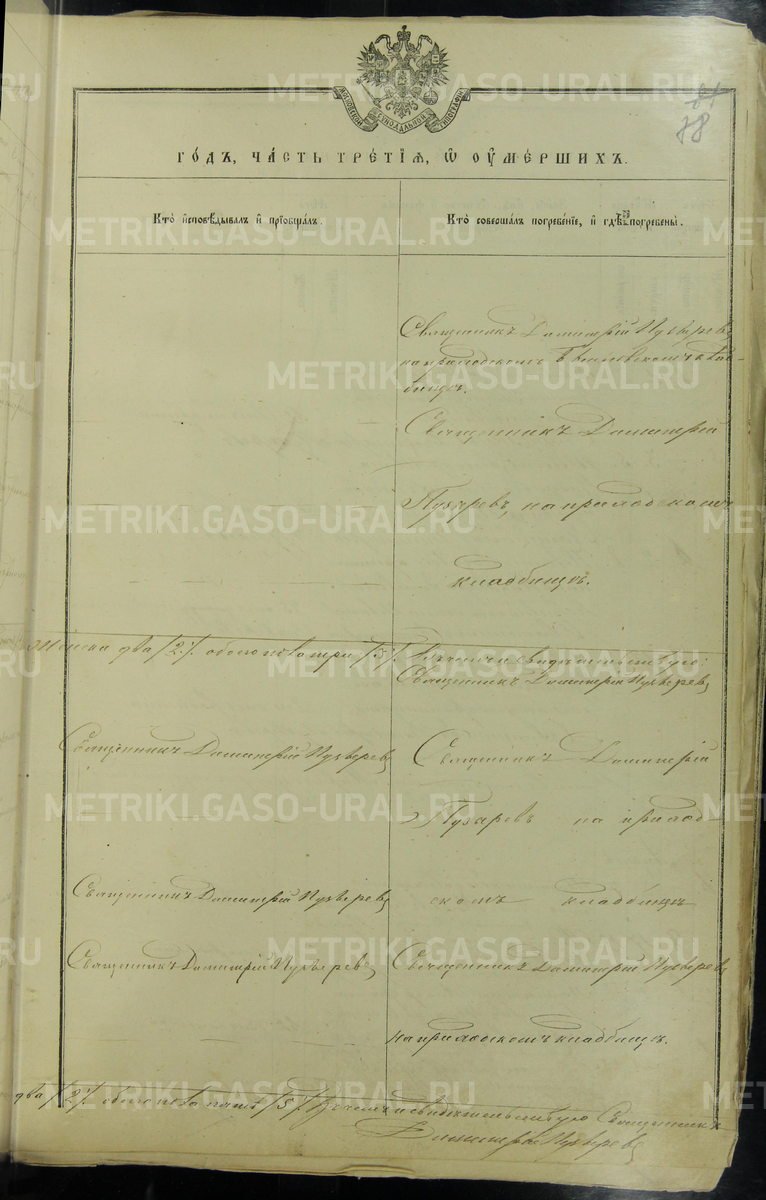 МОСКОВСКОЙ СѴНОДАЛЬНОЙ ТИПОГРАФІИ
78
ГО́ДЪ, ЧА́СТЬ ТРЕ́ТІЯ, Ѿ ОУМЕ́РШИХЪ.
Кто̀ и҆сповѣ́дывалъ и҆ прїобща́лъ.
Кто̀ соверша́лъ погребе́нїе, и҆ гдѣ̀ погребены̀.
Священникъ Димитрій Пузыревъ
на приходскомъ клад-
бищѣ.
Священникъ Димитрій
Пузыревъ, на приходскомъ
кладбищѣ.
Женска два /2/. обоего пола три
Священникъ Димитрій Пузыревъ
Священникъ Димитрій Пузыревъ
Священникъ Димитрій
Пузыревъ на приход-
скомъ кладбищѣ
Священникъ Димитрій Пузыревъ
Священникъ Димитрій Пузыревъ
Священникъ Димитрій Пузыревъ
на приходскомъ кладбищѣ.
два /2/. обоего пола пять /5/. Священникъ
Димитрій Пузыревъ
METRIKI.GASO-URAL.RU